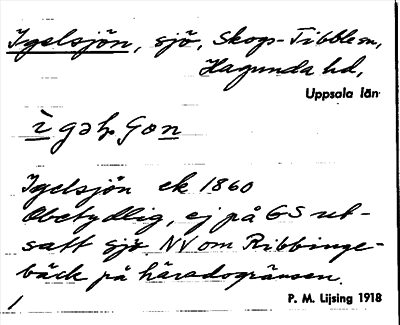 Igelsjön, sjö, Skogs-Tibble sn,
Hagunda hd,
Uppsala län
Igelsjön ek 1860
Obetydlig, ej på GS ut-
satt sjö NV om Ribbinge-
bäck på häradsgränsen.
1 P. M. Lijsing 1918